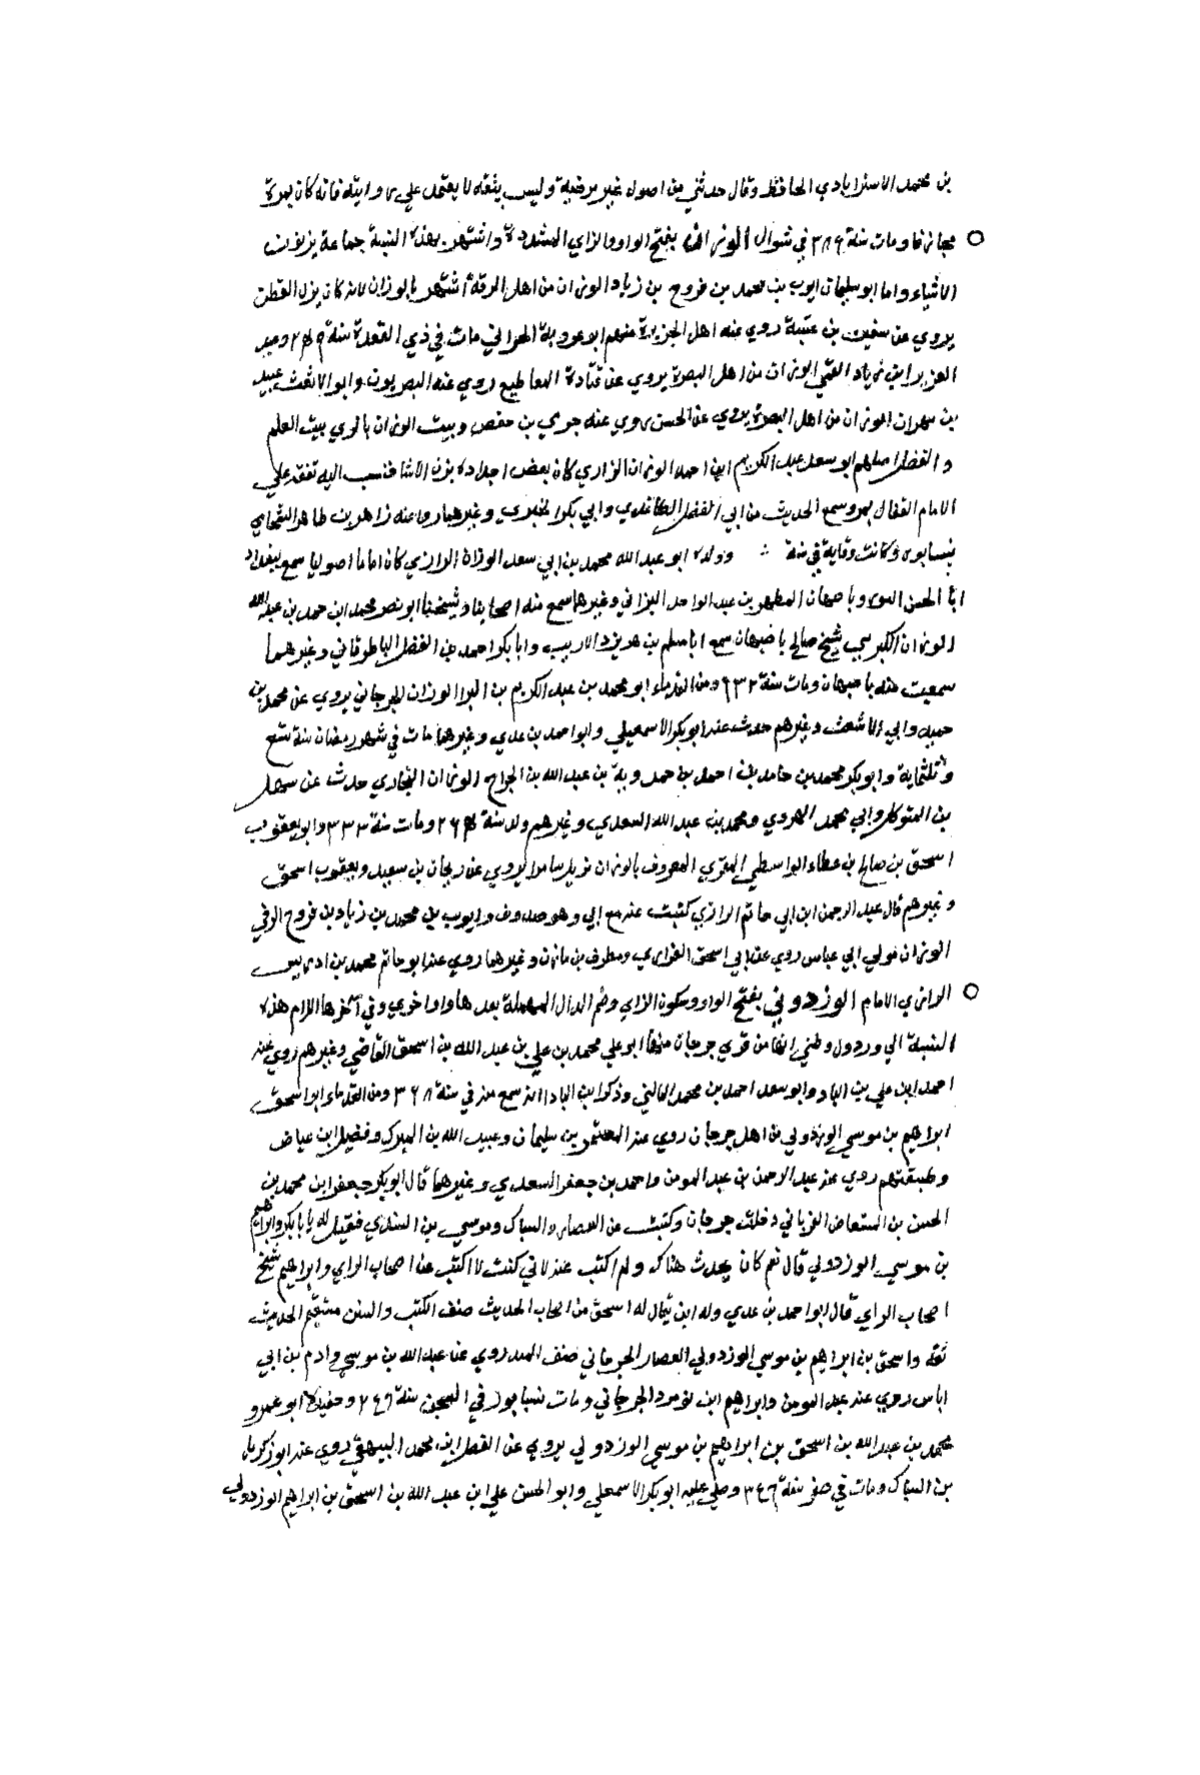 بن محمد الاستراباذي الحافظ وقال حدثني من اصوله غير مرضية وليس بثقة لا يعتمد علي روايته فانه كان يهرة
مجازفا ومات سنة ٣٨٦ في شوال الوزان بفتح الواو والزاي المشددة واشتهر بهذه النسبة جماعة يزنون
الاشياء واما ابو سليمان ايوب بن محمد بن فروح بن زياد الوزان من اهل الرقة اشتهر بالوزان لانه كان يزن القطن
يروي عن سفين بن عيينة روي عنه اهل الجزيرة منهم ابو عروبة الحراني مات في ذي القعدة سنة ٢٤٩ وعبد
العزيز ابن زياد العمي الوزان من اهل البصرة يروي عن قتادة المقاطيع روي عنه البصريون وابو الاشعث عبيد
بن مهران الوزان من اهل البصرة يروي عن الحسن روي عنه جرمي بن حفص وبيت الوزان بالري بيت العلم
والفضل اصلهم ابو سعد عبد الكريم ابن احمد الوزان الرازي كان بعض اجداده يزن الاشيا فنسب اليه تفقه علي
الامام القفال بمرو وسمع الحديث من ابي الفضل الكاغدي وابي بكر الخيري وغيرهما روا عنه زاهر بن طاهر الشحامي
بنسابور وكانت وفاته في سنة ∴ وولده ابو عبد الله محمد بن ابي سعد الوزان الرازي كان اماما اصوليا سمع ببغداد
ابا الحسن وباصبهان المطهر بن عبد الواحد البزاني وغيرهما سمع منه اصحابنا وشيخنا ابو نصر محمد ابن حمد بن عبد الله
الوزان الكبريتي شيخ صالح باصبهان سمع ابا مسلم بن مهريزد الاديب وابا بكر احمد بن الفضل الباطرقاني وغيرهما
سمعت منه باصبهان ومات سنة ٦٣٢ ومن القدماء ابو محمد بن عبد الكريم بن الوزان الجرجاني يروي عن محمد بن
حميد وابي الاشعث وغيرهم حدث عنه ابو بكر الاسمعيلي وابو احمد بن عدي وغيرهما مات في شهر رمضان سنة تسع
وثلثماية وابو بكر محمد بن حامد بن احمد بن حمدويه بن عبد الله بن الجراح الوزان البخاري حدث عن سهل
بن المتوكل وابي محمد الهروي ومحمد بن عبد الله السعدي وغيرهم ولد سنة ٢٦٤ ومات سنة ٣٣٣ وابو يعقوب
اسحق بن صالح بن عطاء الواسطي المقري المعروف بالوزان نزيل سامرا يروي عن ريحان بن سعيد ويعقوب اسحق
وغيرهم قال عبد الرحمن ابن ابي حاتم الرازي كتبت عنه مع ابي وهو صدوق وايوب بن محمد بن زياد بن فروح الرقي
الوزان مولي ابي عباس روي عن ابي اسحق الفزاري ومطرف بن مازن وغيرهما روي عنه ابو حاتم محمد بن ادريس
الرازي الامام الوزدوني بفتح الواو وسكون الزاي وضم الدال المهملة بعدها واو اخري وفي آخرها اللام هذه
النسبة الي وزدول وظني انها من قري جرجان منها ابو علي محمد بن علي بن عبد الله بن اسحق القاضي وغيرهم روي عنه
احمد ابن علي بن الباد وابو سعد احمد بن محمد الماليني وذكر ابن الباد انه سمع منه في سنة ٣٦٨ ومن القدماء ابو اسحق
ابراهيم بن موسي الوزدولي من اهل جرجان روي عنه المعتمر بن سليمان وعبيد الله بن المبرك وفضيل ابن عياض
وطبقتهم روي عنه عبد الرحمن بن عبد المومن واحمد بن جعفر السعدي وغيرهما قال ابو بكر جعفر ابن محمد بن
الحسن بن المستعاض الفرياني دخلت جرجان وكتبت عن العصار والسباك وموسي بن السندي فقيل له يا ابا بكر وابراهيم
بن موسي الوزدولي قال نعم كان يحدث هناك ولم اكتب عنه لاني كنت لا اكتب عن اصحاب الراي وابراهيم شيخ
اصحاب الراي قال ابو احمد بن عدي وله ابن يقال له اسحق من اصحاب الحديث صنف الكتب والسنن مستقيم الحديث
ثقة واسحق بن ابراهيم بن موسي الوزدولي العصار الجرجاني صنف المسند روي عن عبد الله بن موسي وادم بن ابي
اياس روي عنه عبد المومن وابراهيم ابن نومرد الجرجاني ومات بنيسابور في السجن سنة ٢٤٦ وحفيده ابو عمرو
محمد بن عبد الله بن اسحق بن ابراهيم بن موسي الوزدولي يروي عن الفضل ابن محمد البيهقي روي عنه ابو زكريا
بن السباك ومات في صفر سنة ٣٤٦ وصلي عليه ابو بكر الاسمعلي وابو الحسن علي ابن عبد الله بن اسحق بن ابراهيم الوزدولي